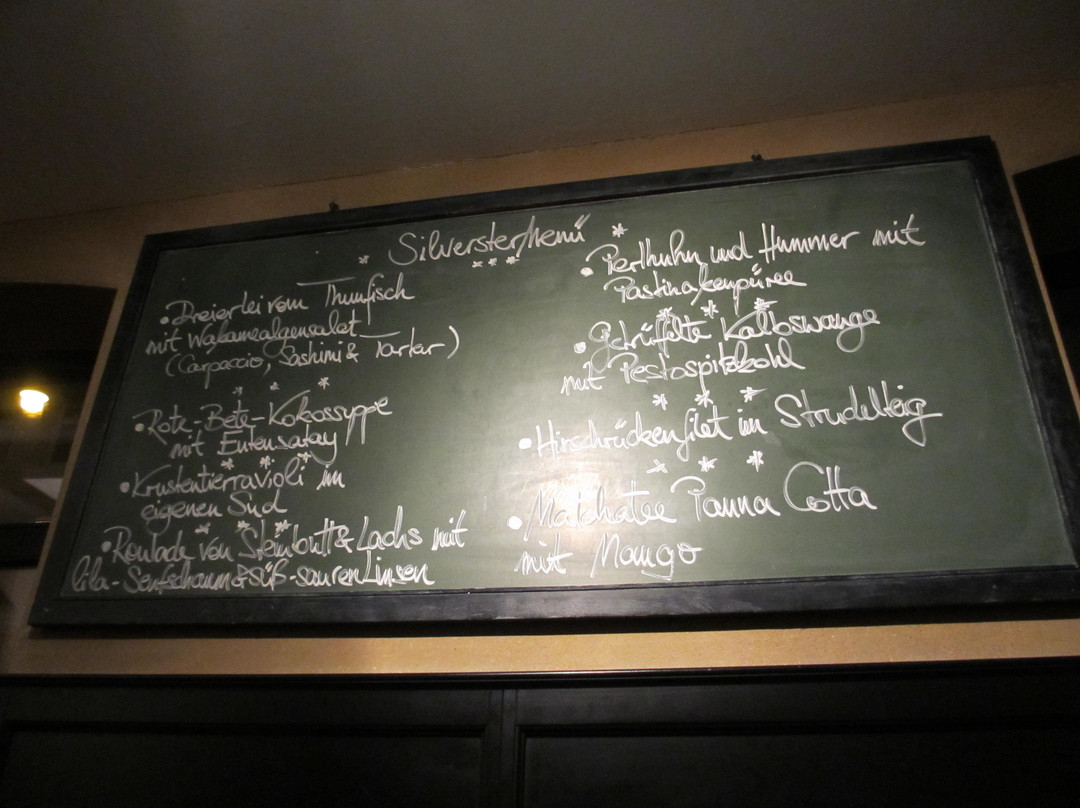 Silvestermenü
• Dreierlei vom Thunfisch
mit Wakamealgensalat
(Carpaccio, Sashimi & Tartar)
• Rote-Bete-Kokossuppe
mit Entensatay
• Krustentierravioli im
eigenen Sud
• Roulade von Steinbutt & Lachs mit
lila-Senfschaum & süß-sauren Linsen
• Perlhuhn und Hummer mit
Pastinakenpüree
• Getrüffelte Kalbswange
mit Pestospitzkohl
• Hirschrückenfilet im Strudelteig
• Matchatee Panna Cotta
mit Mango